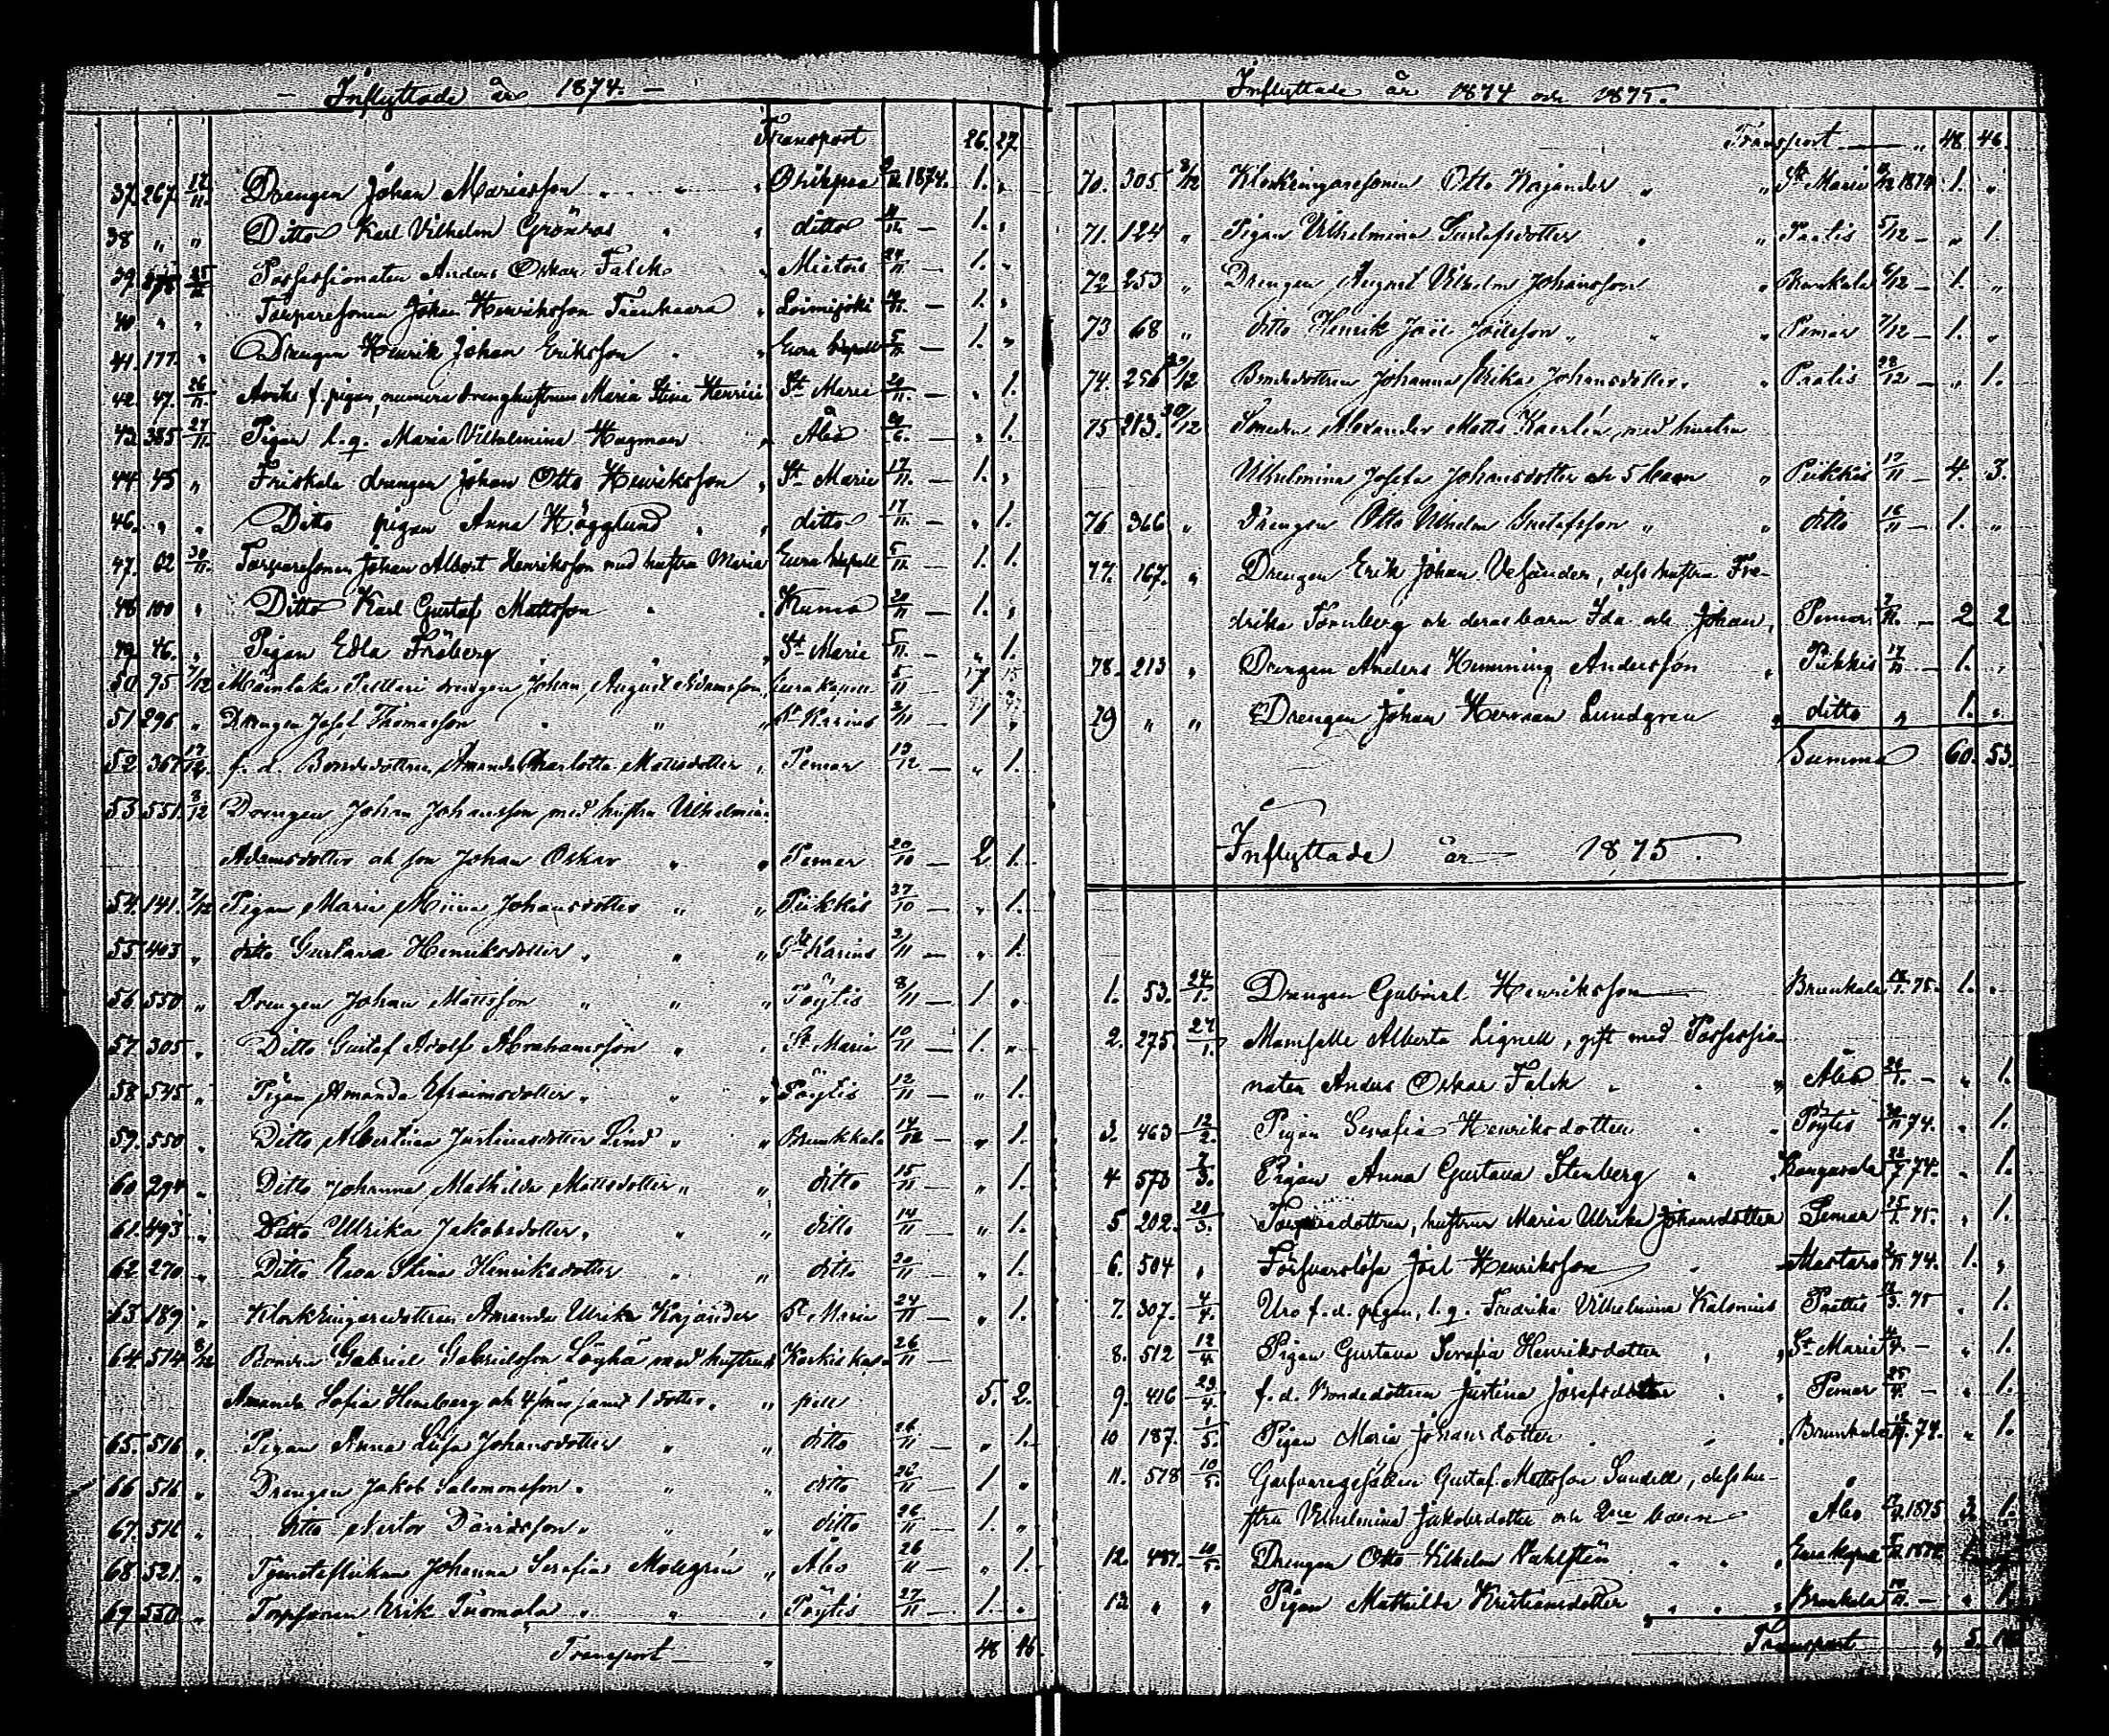 Inflyttade år 1874.
Transport 26. 27.
37. 267. 12/11. Drengen Johan Mariasson " 1874. 1. "
38 " " Ditto Karl Vilhelm Grönroos " ditto — 1. "
39. 25/11 Possessionaten Anders Oskar Falck " Mietois 24/11 — 1. "
40 " " Torparesonen Johan Henriksson " Loimijoki — 1. "
41. 177. " Drengen Henrik Johan Eriksson " Eura kapell 5/11 — 1. "
42. 47. 26/11 f. pigan, numera drenghustrun Maria Stina Henrici St Marie — " 1.
43. 385 27/11. Pigan l. q. Maria Vilhelmina Hagman " Åbo — " 1.
44 45 " Friskala drengen Johan Otto Henriksson " St Marie 17/11. — 1. "
46. " " Ditto pigan Anna Hägglund " ditto 17/11. — " 1.
47. 62 30/11. Torparesonen Johan Albert Henriksson med hustru Maria Eura kapell 5/11. — 1. 1.
48 100 " Ditto Karl Gustaf Mattsson " Kumo 20/11 — 1. "
49. 46. " Pigan Edla Fröberg " St Marie 5/11. — " 1.
50 95 7/12 drengen Johan August Adamsson, Eura kapell 5/11 —
51. 296 " Drengen Josef Thomasson " St Karins 2/11 — 1 "
52. 367 f. d. Bondedottren Amanda Charlotta Mattsdotter " Pemar — " 1.
53. 551. 8/12 Drengen Johan Johansson med hustru Vilhelmina
Adamsdotter och son Johan Oskar " " Pemar 20/10 — 2 1.
54. 141. 7/12 Pigan Maria Miina Johansdotter " " Piikkis 27/10 — " 1.
55 403 " ditto Gustava Henriksdotter " " St Karins 2/11 — " 1.
56. 550 " Drengen Johan Mattsson " " Pöytis 8/11 — 1 "
57. 305 " Ditto Gustaf Adolf Abrahamsson " St Marie 10/11 — 1. "
58 545 " Pigan Amanda Efraimsdotter " " Pöytis 12/11 — " 1.
59. 550 " Ditto Albertina Justinasdotter Lind " " Brunkkala — " 1.
60 294 " Ditto Johanna Mathilda Mattsdotter " " ditto 15/11 — " 1.
61. 493 " Ditto Ulrika Jakobsdotter " " ditto 14/11 " 1.
62. 270 " Ditto Eva Stina Henriksdotter " " ditto 20/11 — " 1.
63. 189 " Klockringaredottren Amanda Ulrika Kajander St Marie 24/11 — " 1.
64. 514 8/12 Bonden Gabriel Gabrielsson Löyhä med hustrun Koskis ka- 26/11 —
Amanda Sofia Hemberg och 4 söner samt 1 dotter. " pell 5. 2.
65. 516 " Pigan Anna Lisa Johansdotter " ditto 26/11 — " 1.
66 516 " Drengen Jakob Salomonsson " " ditto 26/11 — 1 "
67. 516 " ditto Nestor Davidsson " " ditto 26/11 — 1. "
68. 521. " Tjenstflickan Johanna Serafia Malmgrén " Åbo 26/11 — " 1.
69. 550 " Torpsonen Erik Tuomola " " Pöytis 27/11 — 1. "
Transport — " 48 46.
Inflyttade år 1874 och 1875.
Transport — " 48. 46.
70. 305 8/12 Klockringaresonen Otto Kajander " " St Marie 1874 1. "
71. 124 " Pigan Vilhelmina Gustafsdotter " " Paatis 5/12 — " 1.
72 253 " Drengen August Vilhelm Johansson " Brunkala — 1. "
73 68 " ditto Henrik Joel Joelsson " " Pemar 7/12 — 1. "
74. 256 Bondedottren Johanna Erika Johansdotter " Paatis 28/12 — " 1.
75 213. 30/12 Smeden Alexander Matts Kaerlén, med hustru
Vilhelmina Josefa Johansdotter och 5 barn " Piikkis 17/11 — 4. 3.
76 366 " Drengen Otto Vilhelm Gustafsson " " ditto 16/11 — 1. "
77. 167. " Drengen Erik Johan Vesander, dess hustru Fre-
drika Törnberg och deras barn Ida och Johan, Pemar — 2 2
78. 213 " Drengen Anders Hemming Andersson " Piikkis 17/11 — 1. "
79 " " Drengen Johan Herman Lundgren " ditto " 1. "
Summa 60. 53.
Inflyttade år 1875.
1. 53. 24/1. Drengen Gabriel Henriksson — Brunkala 75. 1. "
2. 275. 27/1. Mamsell Alberta Lignell, gift med Possessio-
naten Anders Oskar Falck " " Åbo — " 1.
3. 463 12/2. Pigan Serafia Henriksdotter " " Pöytis 74. " 1.
4 573 7/3. Pigan Anna Gustava Stenberg " Kangasala 74. " 1.
5 202. 20/3. Torparedottren, hustrun Maria Ulrika Johansdotter Pemar 75. " 1.
6. 504 " Försvarslöse Joel Henriksson " 74. 1. "
7. 307. 4/4. f. d. pigan, l. q. Fredrika Vilhelmina Kalenius Paattis 75 " 1.
8. 512 12/4. Pigan Gustava Serafia Henriksdotter " " St Marie — " 1.
9. 416 23/4. f. d. Bondedottren Justina Josefsdotter " " Pemar — " 1.
10 187. 1/5. Pigan Maria Johansdotter " " Brunkala 74. " 1.
11. 578 10/5. Garfvaregesällen Gustaf Mattsson Sundell, dess hu-
stru Vilhelmina Jakobsdotter och 2ne barn — Åbo 1875 3. 1.
12. 10/5. Drengen Otto Vilhelm Vahlstén " " Eura kapell
12 " " Pigan Mathilda Kristiansdotter " " Brunkala — " 1
Transport " 5.